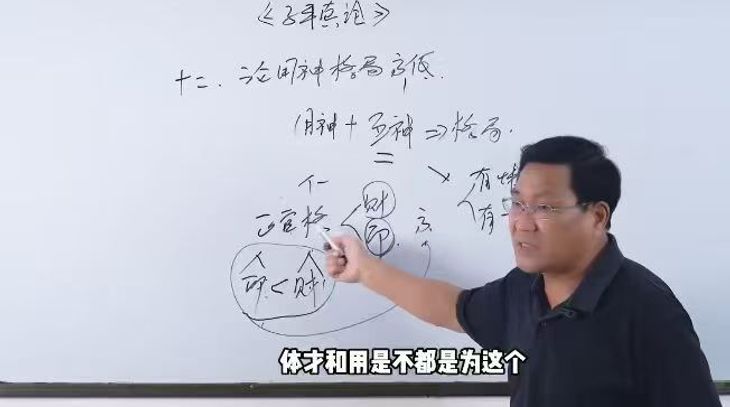 《子平真诠》
十二、论用神格局高低.
用神＋五神⇒格局.
个一
正官格 财 印 高
有情
有
印<财
体才和用是不都是为这个